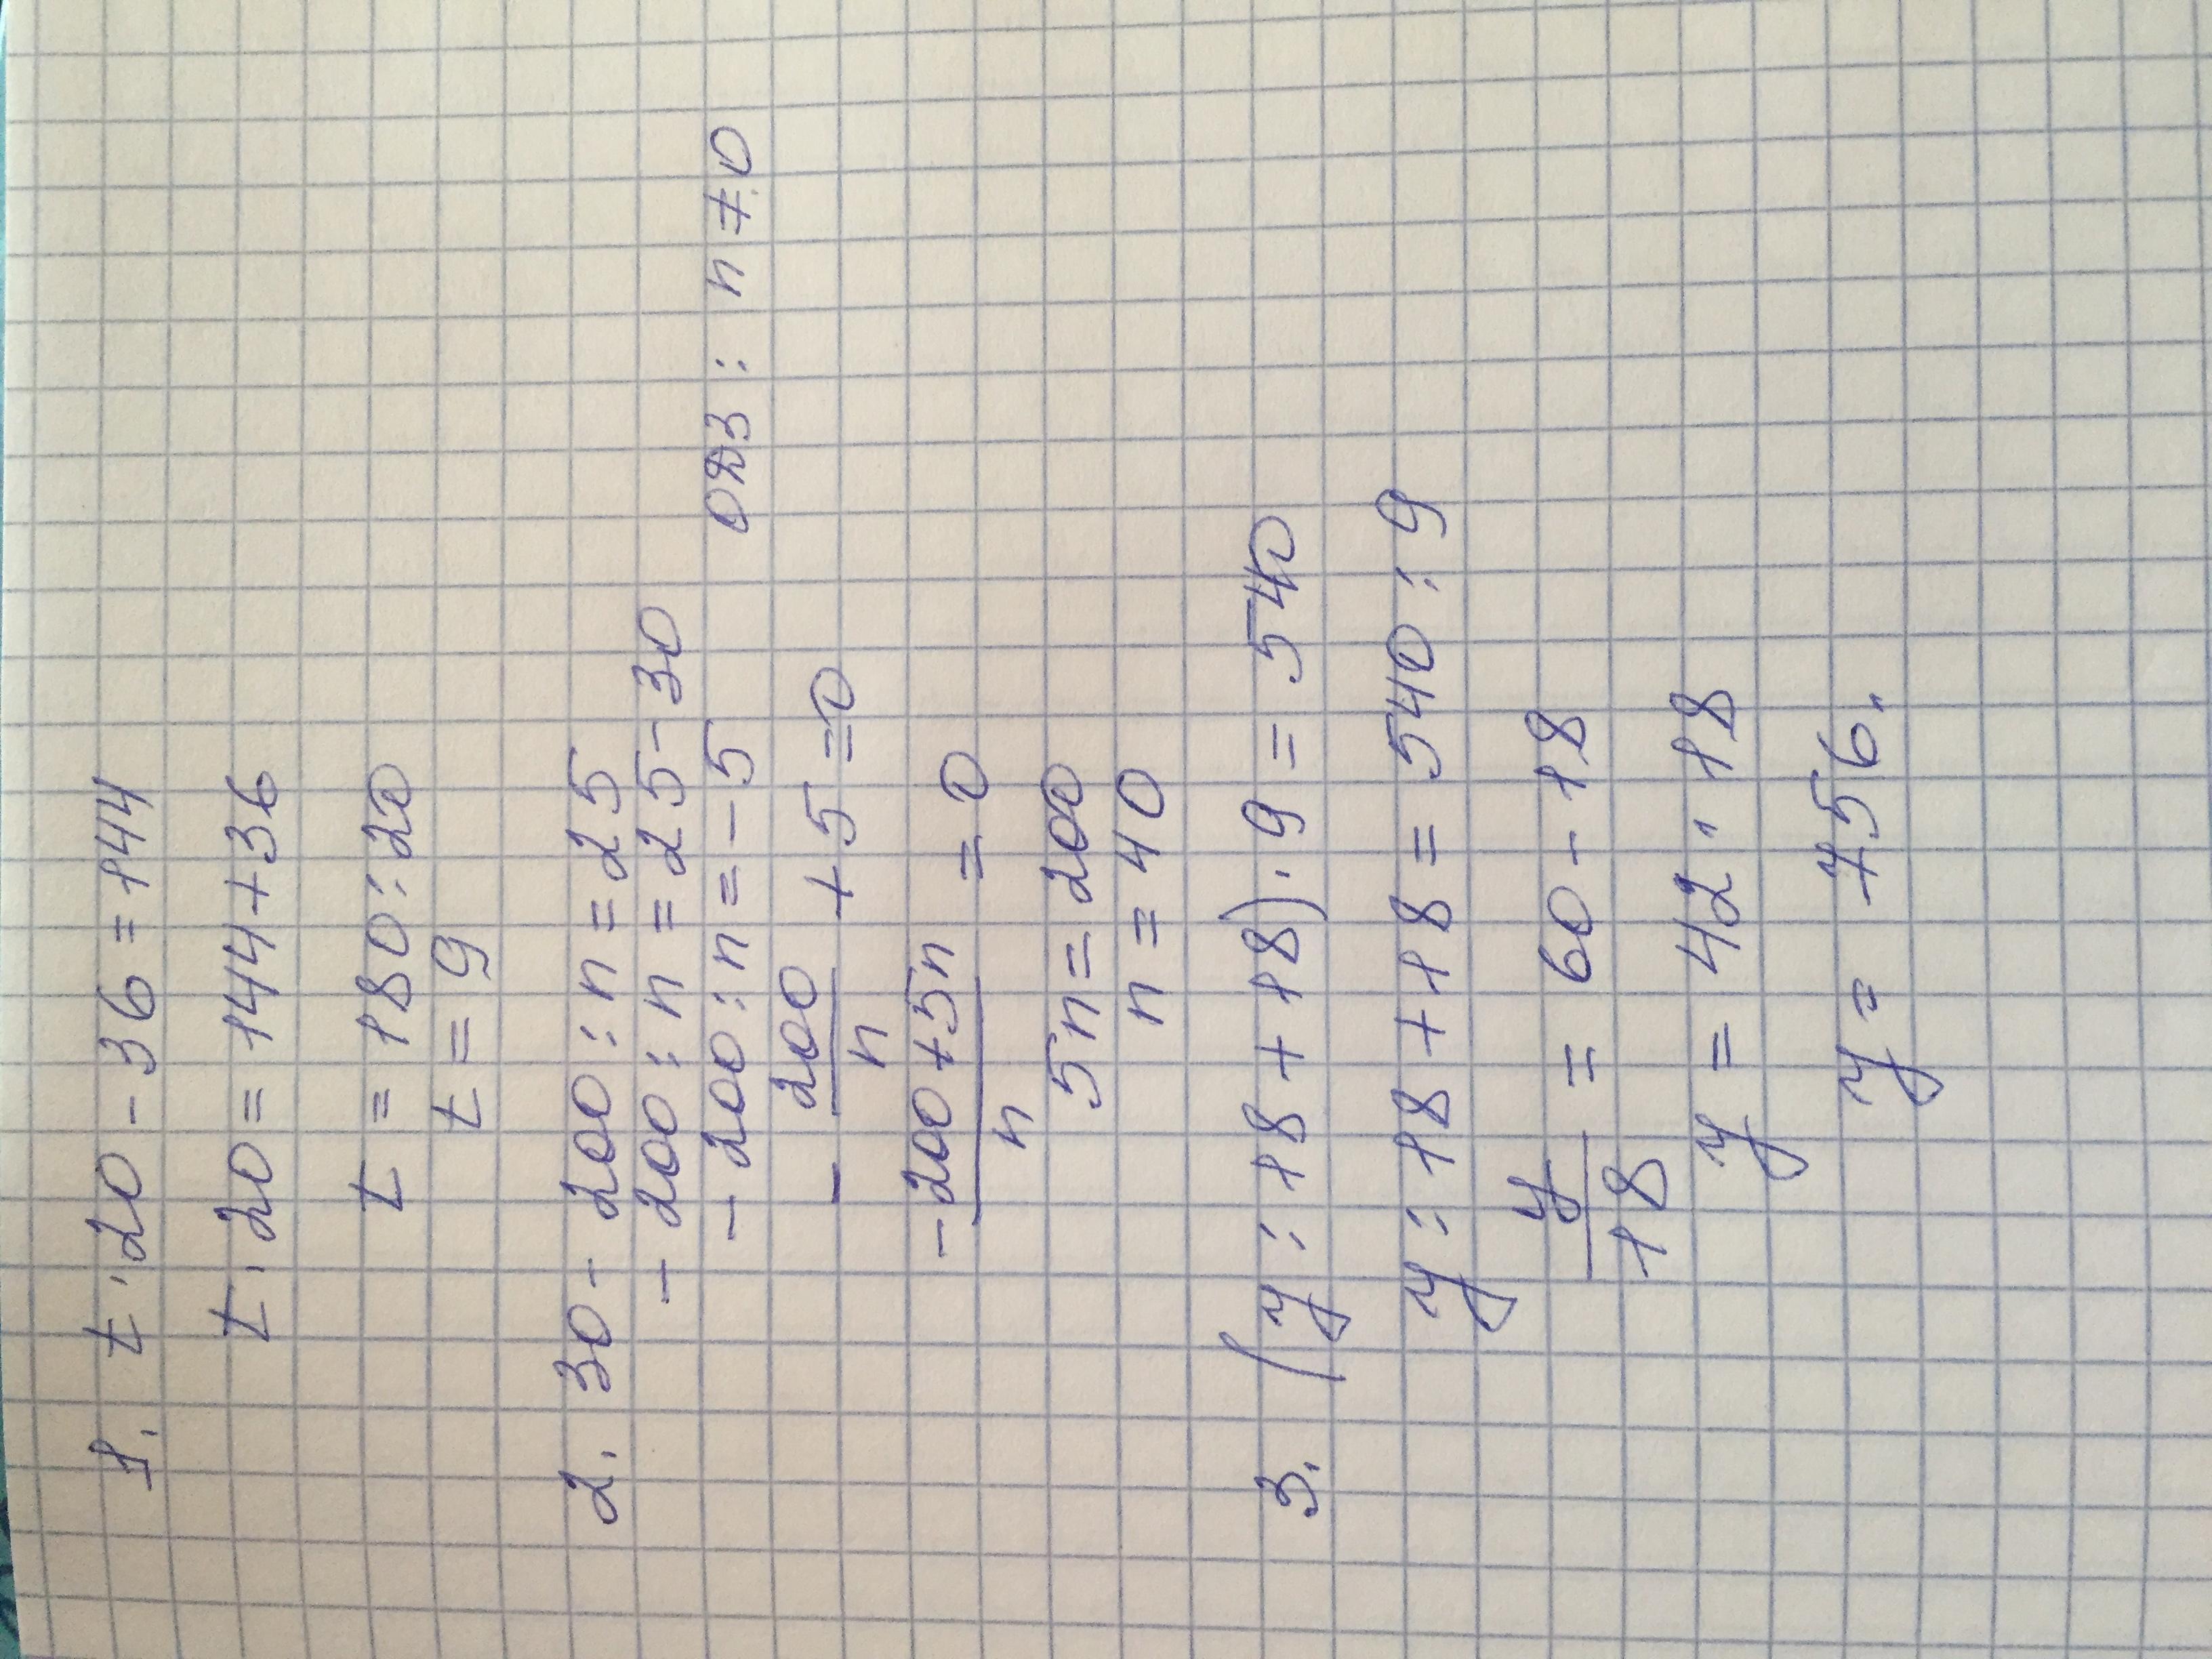 1. t · 20 - 36 = 144
t · 20 = 144 + 36
t = 180 : 20
t = 9
2. 30 - 200 : n = 25
- 200 : n = 25 - 30
- 200 : n = - 5 ОДЗ : n ≠ 0
- 200/n + 5 = 0
(-200 + 5n)/n = 0
5n = 200
n = 40
3. (y : 18 + 18) · 9 = 540
y : 18 + 18 = 540 : 9
y/18 = 60 - 18
y = 42 · 18
y = 756.